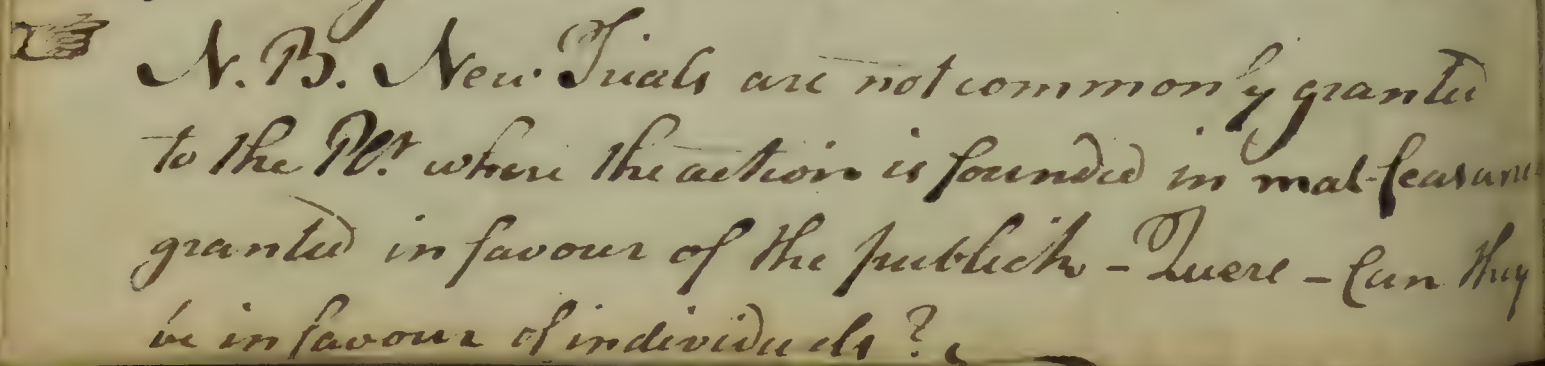 ☞ N.B. New Trials are not commonly granted
to the Plt. where the action is founded in mal-feasance
granted in favour of the publick - Quere - Can they
be in favour of individuals?